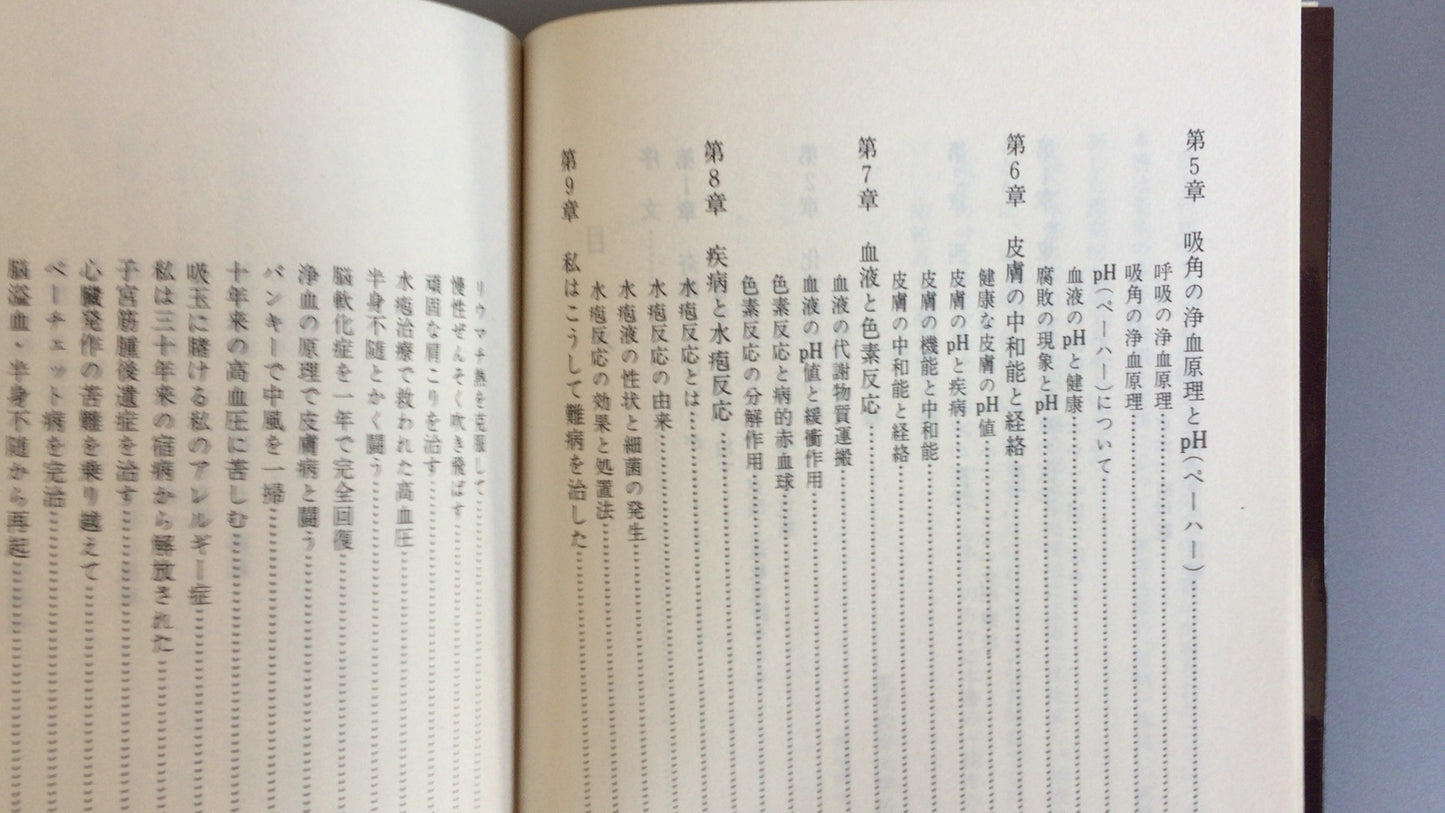 第5章　吸角の浄血原理とpH(ペーハー)
呼吸の浄血原理
吸角の浄血原理
pH(ペーハー)について
血液のpHと健康
腐敗の現象とpH
第6章　皮膚の中和能と経絡
健康な皮膚のpH値
皮膚のpHと疾病
皮膚の機能と中和能
皮膚の中和能と経絡
第7章　血液と色素反応
血液の代謝物質運搬
血液のpH値と緩衝作用
色素反応と病的赤血球
色素反応の分解作用
第8章　疾病と水疱反応
水疱反応とは
水疱反応の由来
水疱液の性状と細菌の発生
水疱反応の効果と処置法
第9章　私はこうして難病を治した
リウマチ熱を克服して
慢性ぜんそく吹き飛ばす
頑固な肩こりを治す
水疱治療で救われた高血圧
半身不随とかく闘う
脳軟化症を一年で完全回復
浄血の原理で皮膚病と闘う
バンキーで中風を一掃
十年来の高血圧に苦しむ
吸玉に賭ける私のアレルギー症
私は三十年来の宿病から解放された
子宮筋腫後遺症を治す
心臓発作の苦難を乗り越えて
ベーチェット病を完治
脳溢血・半身不随から再起